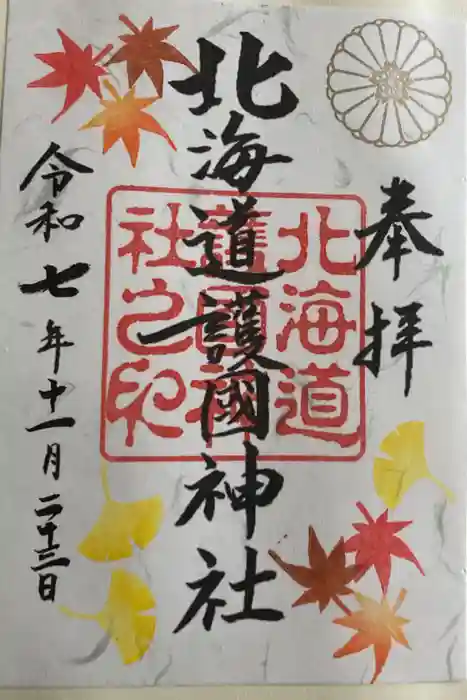 奉拝
北海道護國神社
北海道
護國神
社之印
令和七年十一月二十三日